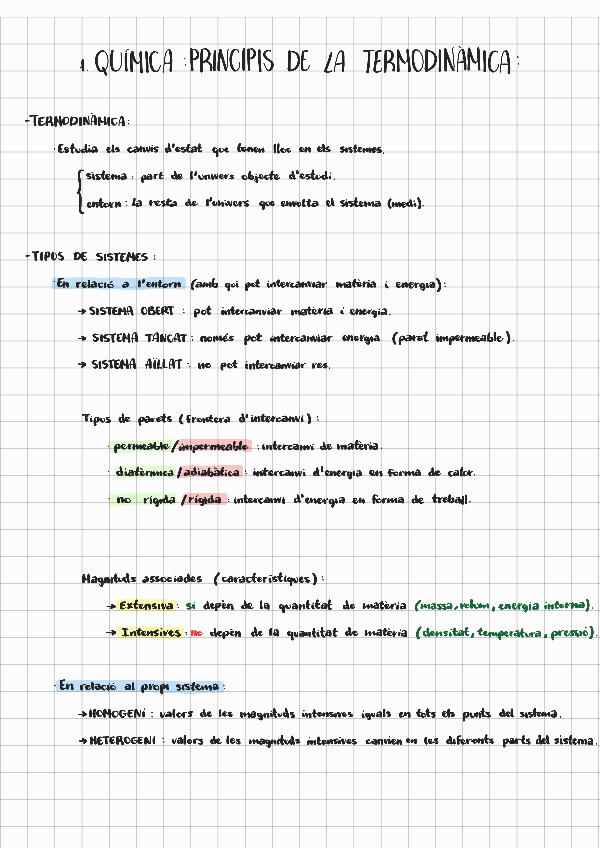 1. QUÍMICA : PRINCIPIS DE LA TERMODINÀMICA :
- TERMODINÀMICA :
· Estudia els canvis d'estat que tenen lloc en els sistemes.
sistema : part de l'univers objecte d'estudi.
entorn : la resta de l'univers que envolta el sistema (medi).
- TIPUS DE SISTEMES :
· En relació a l'entorn (amb qui pot intercanviar matèria i energia) :
→ SISTEMA OBERT : pot intercanviar matèria i energia.
→ SISTEMA TANCAT : només pot intercanviar energia (paret impermeable).
→ SISTEMA AÏLLAT : no pot intercanviar res.
Tipus de parets (frontera d'intercanvi) :
· permeable / impermeable : intercanvi de matèria.
· diatèrmica / adiabàtica : intercanvi d'energia en forma de calor.
· no rígida / rígida : intercanvi d'energia en forma de treball.
Magnituds associades (característiques) :
→ Extensiva : sí depèn de la quantitat de matèria (massa, volum, energia interna).
→ Intensives : no depèn de la quantitat de matèria (densitat, temperatura, pressió).
· En relació al propi sistema :
→ HOMOGENI : valors de les magnituds intensives iguals en tots els punts del sistema.
→ HETEROGENI : valors de les magnituds intensives canvien en les diferents parts del sistema.